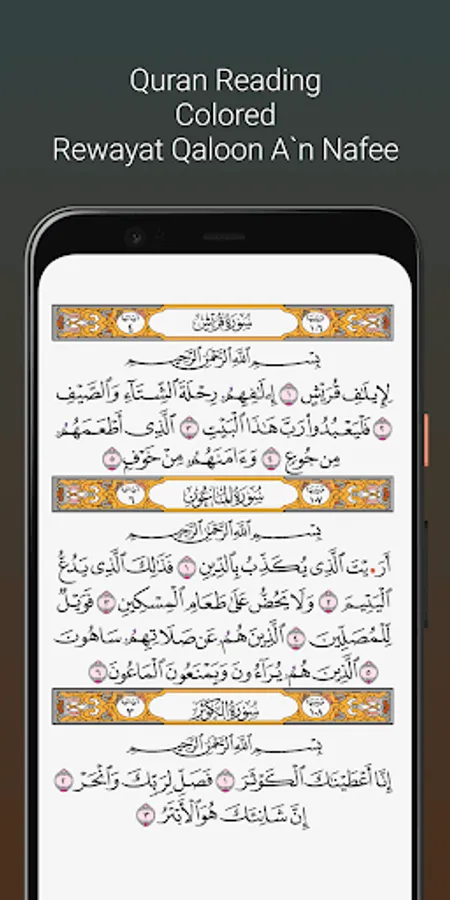 Quran Reading
Colored
Rewayat Qaloon A`n Nafee
سُورَةُ قُرَيْشٍ ١٠٦
بِسْمِ اِللَّهِ اِلرَّحْمَٰنِ اِلرَّحِيمِ
لِإِيلَٰفِ قُرَيْشٍ ١ إِۦلَٰفِهِمُۥ رِحْلَةَ اَلشِّتَآءِ وَالصَّيْفِ
٢ فَلْيَعْبُدُواْ رَبَّ هَٰذَا اَلْبَيْتِ ٣ اَلَّذِي أَطْعَمَهُمُۥ
مِن جُوعٍ ٤ وَءَامَنَهُمُۥ مِنْ خَوْفٍ ٥
سُورَةُ اُلْمَاعُونِ ١٠٧ ٦
بِسْمِ اِللَّهِ اِلرَّحْمَٰنِ اِلرَّحِيمِ
أَرَ•يْتَ اَلَّذِي يُكَذِّبُ بِالدِّينِ ١ فَذَٰلِكَ اَلَّذِي يَدُعُّ
اُلْيَتِيمَ ٢ وَلَا يَحُضُّ عَلَىٰ طَعَامِ اِلْمِسْكِينِ ٣ فَوَيْلٌ
لِّلْمُصَلِّينَ ٤ اَلَّذِينَ هُمُۥ عَن صَلَاتِهِمُۥ سَاهُونَ
٥ اَلَّذِينَ هُمُۥ يُرَآءُونَ وَيَمْنَعُونَ اَلْمَاعُونَ ٦
سُورَةُ اُلْكَوْثَرِ ١٠٨ ٣
بِسْمِ اِللَّهِ اِلرَّحْمَٰنِ اِلرَّحِيمِ
إِنَّا أَعْطَيْنَٰكَ اَلْكَوْثَرَ ١ فَصَلِّ لِرَبِّكَ وَانْحَرْ ٢
إِنَّ شَانِئَكَ هُوَ اَلْأَبْتَرُ ٣